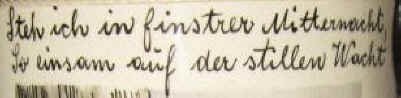 Steh ich in finstrer Mitternacht,
So einsam auf der stillen Wacht